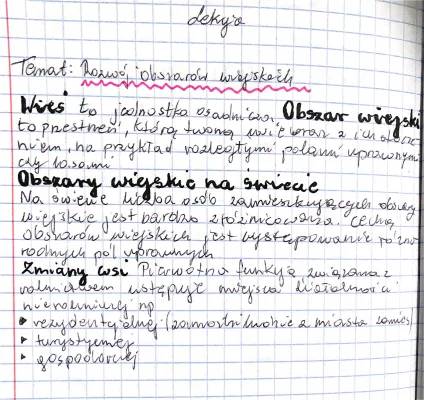 Lekcja
Temat: Rozwój obszarów wiejskich
Wieś to jednostka osadnicza, Obszar wiejski
to przestrzeń, którą tworzą wsie wraz z ich otocze-
niem, na przykład rozległymi polami uprawnymi
czy lasami
Obszary wiejskie na świecie
Na świecie liczba osób zamieszkujących obszary
wiejskie jest bardzo zróżnicowana. Cechą
obszarów wiejskich jest występowanie różno-
rodnych pól uprawnych
Zmiany wsi Pierwotna funkcja związana z
rolnictwem ustępuje miejsca działalności
nierolniczej np
rezydencjalnej (zamożni ludzie z miasta
turystycznej
gospodarczej